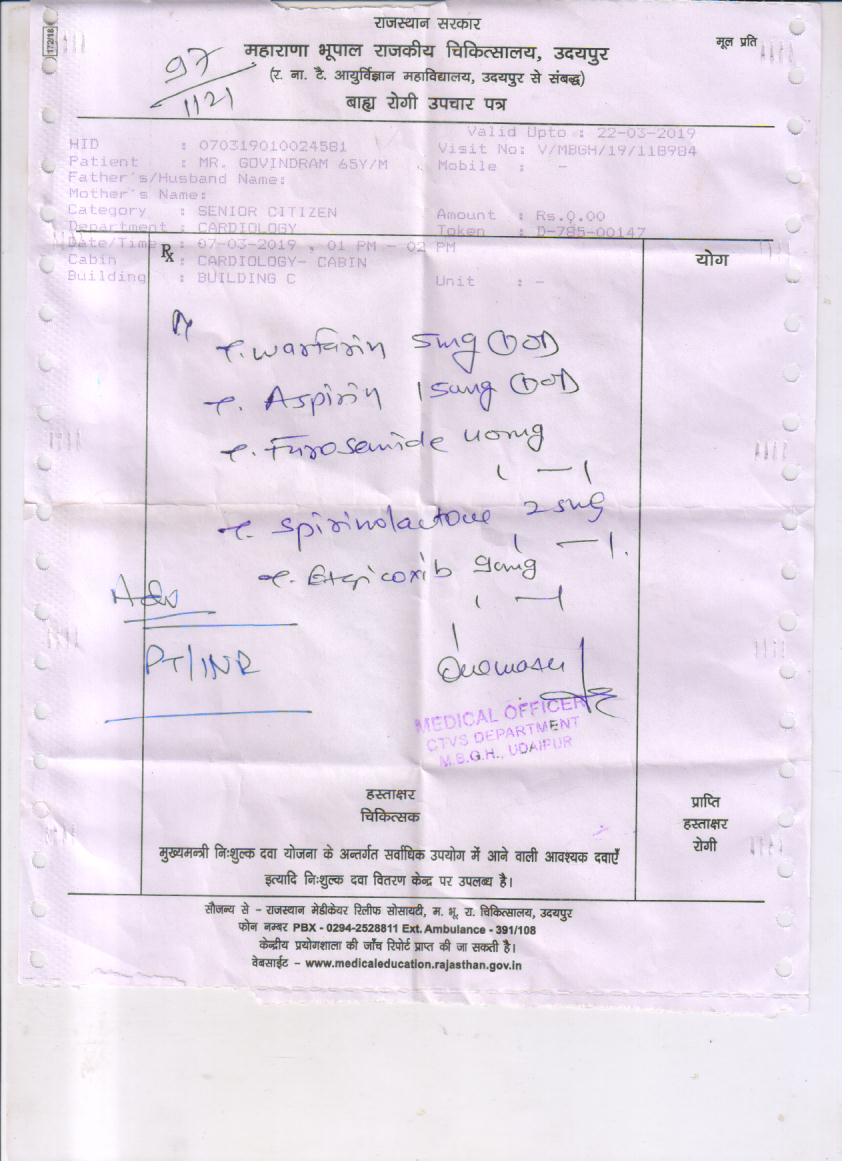 172/18
राजस्थान सरकार
महाराणा भूपाल राजकीय चिकित्सालय, उदयपुर
मूल प्रति
(र. ना. टै. आयुर्विज्ञान महाविद्यालय, उदयपुर से संबद्ध)
97/1121
बाह्य रोगी उपचार पत्र
Valid Upto : 22-03-2019
HID : 070319010024581 Visit No: V/MBGH/19/118984
Patient : MR. GOVINDRAM 65Y/M Mobile : -
Father's/Husband Name:
Mother's Name:
Category : SENIOR CITIZEN Amount : Rs.0.00
Department : CARDIOLOGY Token : D-785-00147
Date/Time : 07-03-2019 , 01 PM - 02 PM
Rx योग
Cabin : CARDIOLOGY- CABIN
Building : BUILDING C Unit : -
T. Warfarin 5mg 1 OD
T. Aspirin 150mg 1 OD
T. Furosemide 40mg
1 — 1
T. Spirinolactone 25mg
1 — 1.
T. Etgicoxib 90mg
1 — 1
Adv
PT/INR
MEDICAL OFFICER
CTVS DEPARTMENT
M.B.G.H., UDAIPUR
हस्ताक्षर
चिकित्सक
प्राप्ति
हस्ताक्षर
रोगी
मुख्यमन्त्री निःशुल्क दवा योजना के अन्तर्गत सर्वाधिक उपयोग में आने वाली आवश्यक दवाएँ
इत्यादि निःशुल्क दवा वितरण केन्द्र पर उपलब्ध है।
सौजन्य से – राजस्थान मेडीकेयर रिलीफ सोसायटी, म. भू. रा. चिकित्सालय, उदयपुर
फोन नम्बर PBX - 0294-2528811 Ext. Ambulance - 391/108
केन्द्रीय प्रयोगशाला की जाँच रिपोर्ट प्राप्त की जा सकती है।
वेबसाईट – www.medicaleducation.rajasthan.gov.in